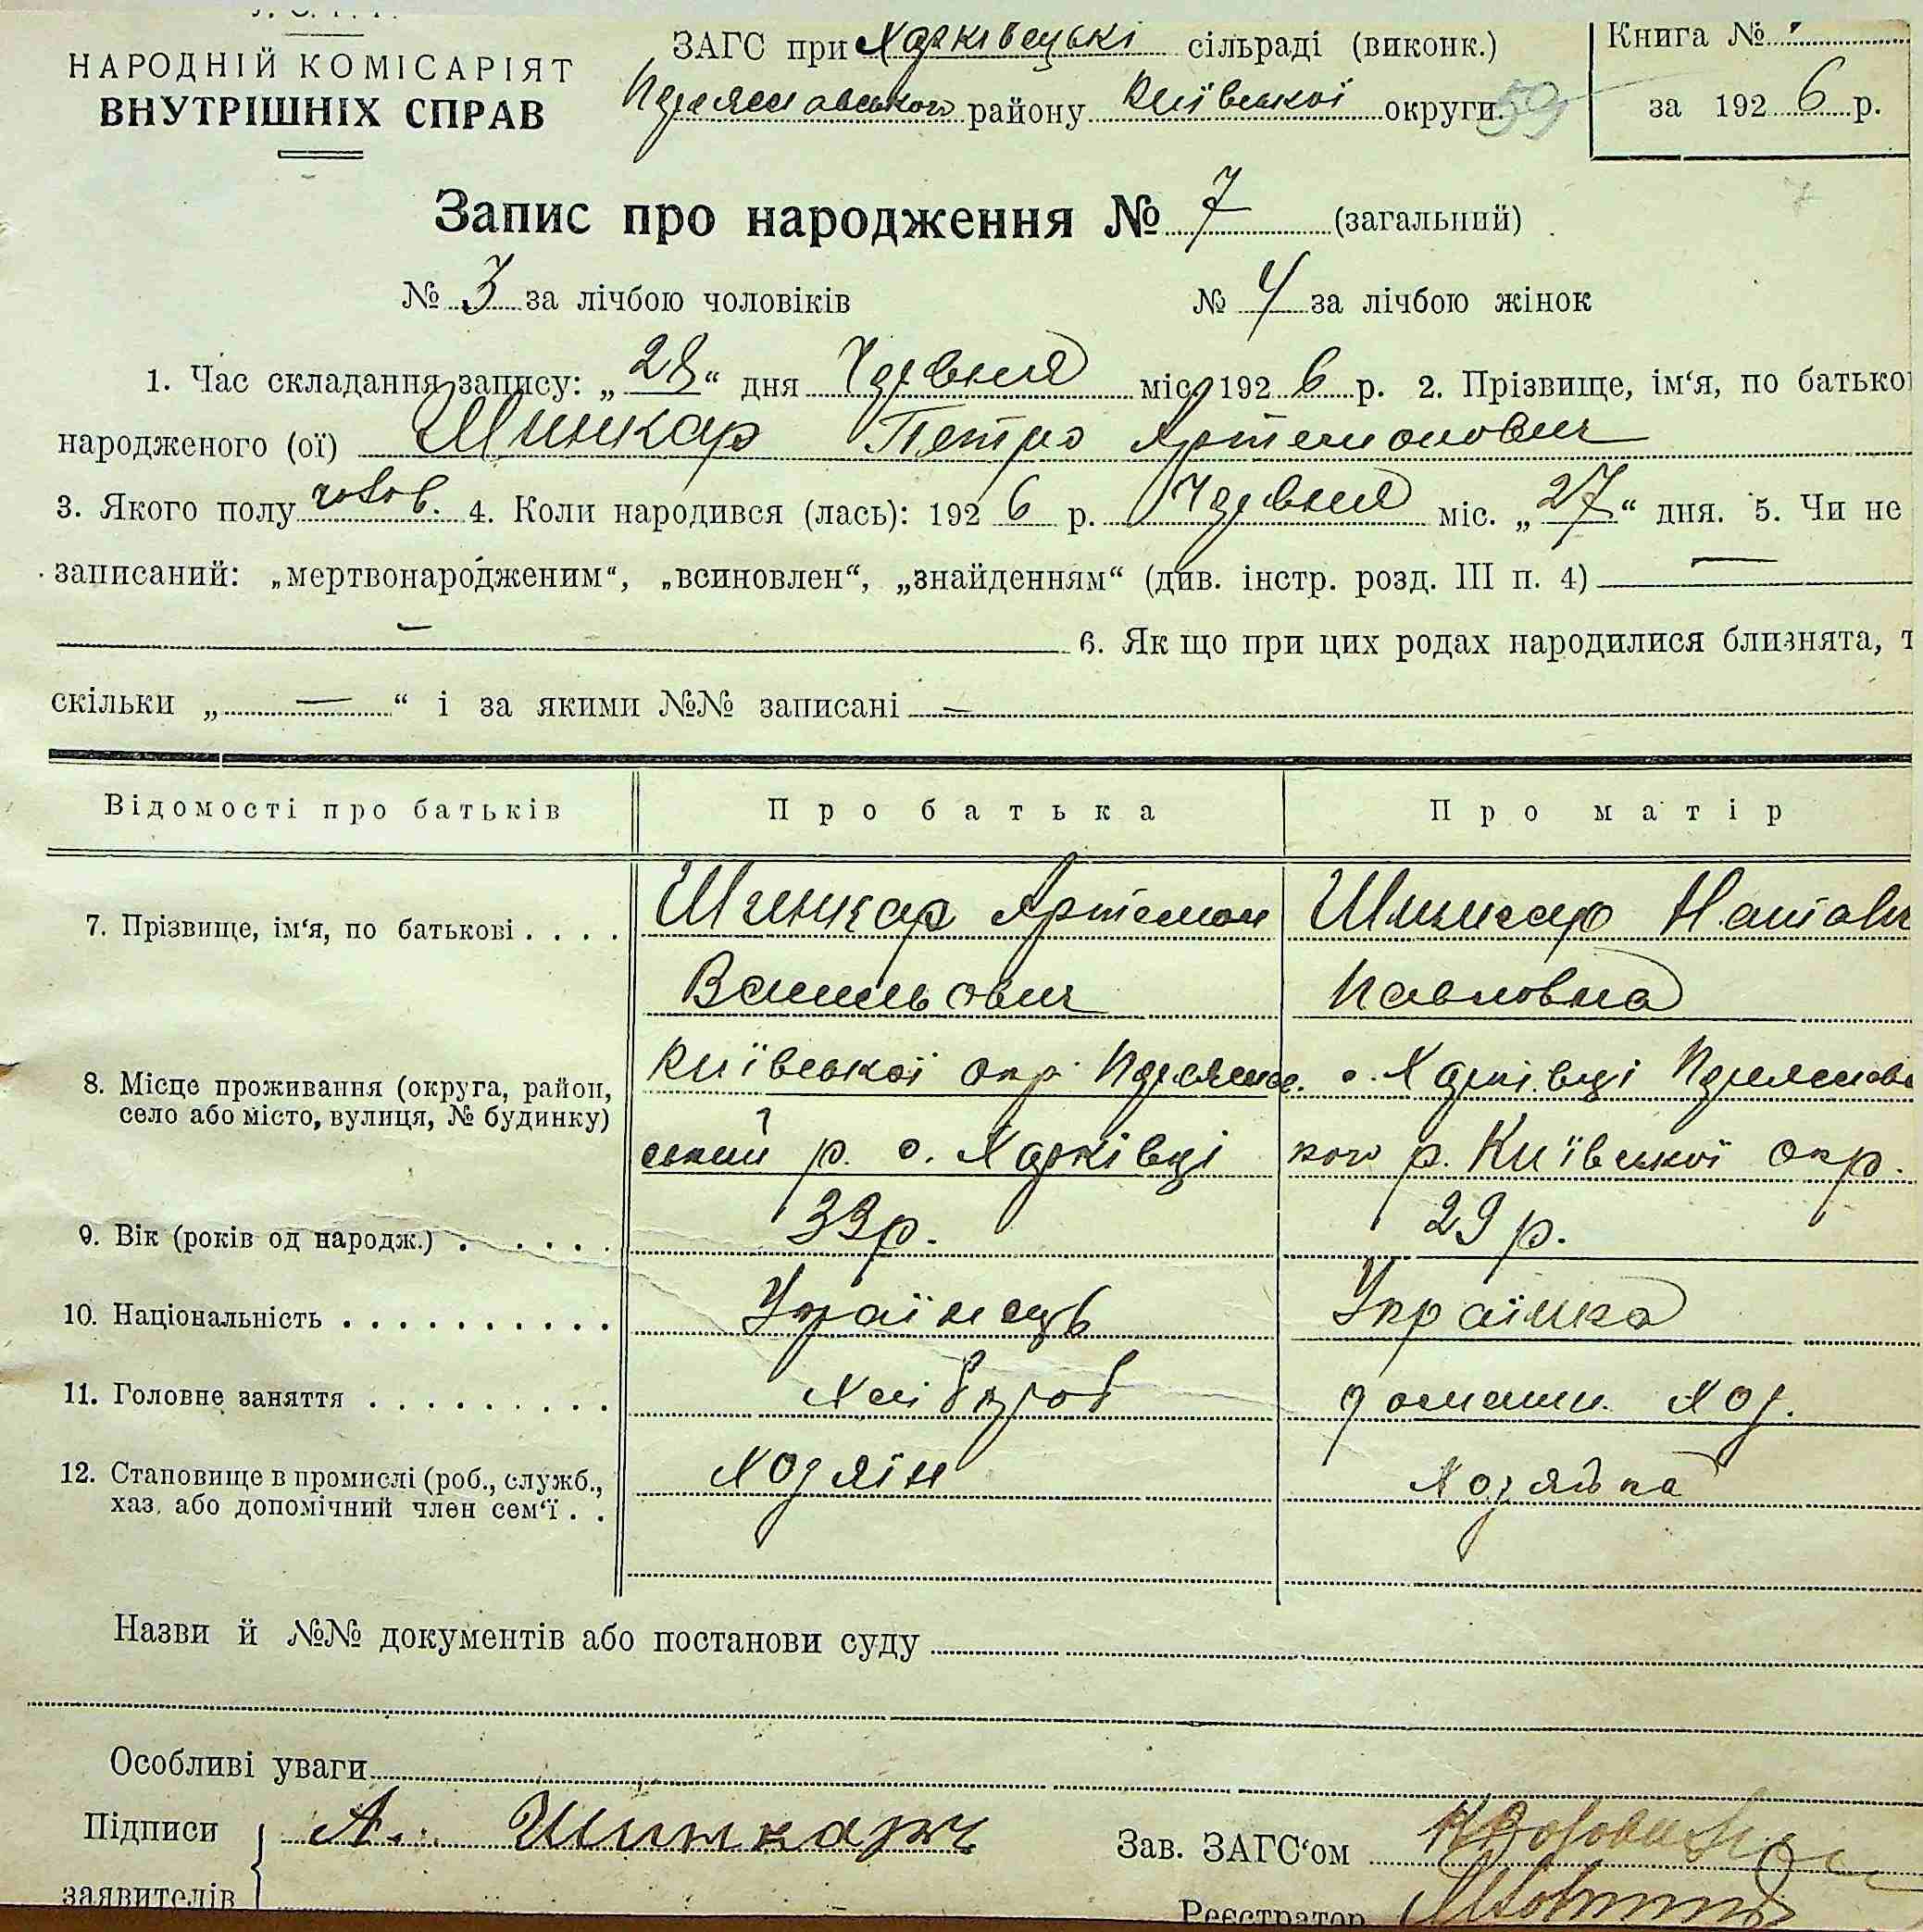 НАРОДНІЙ КОМІСАРІЯТ
ВНУТРІШНІХ СПРАВ
ЗАГС при Харківецькі сільраді (виконк.)
району Київської округи. 59
Книга №
за 1926 р.
Запис про народження № 7 (загальний)
7
№ 3 за лічбою чоловіків № 4 за лічбою жінок
1. Час складання запису: „28“ дня Червня міс. 1926 р. 2. Прізвище, ім‘я, по батько
народженого (ої) Шинкар Петро Артемонович
3. Якого полу чолов. 4. Коли народився (лась): 1926 р. Червня міс. „27“ дня. 5. Чи не
записаний: „мертвонародженим“, „всиновлен“, „знайденням“ (див. інстр. розд. III п. 4) —
— 6. Як що при цих родах народилися близнята, т
скільки „—“ і за якими №№ записані —
Відомості про батьків Про батька Про матір
7. Прізвище, ім‘я, по батькові . . . . Шинкар Артемон Шинкар Наталі
Васильович Павловна
8. Місце проживання (округа, район, Київської окр. с. Харківці
село або місто, вулиця, № будинку) ський р. с. Харківці кого р. Київської окр.
9. Вік (років од народж.) . . . . . 39р. 29 р.
10. Національність . . . . . . . . . . . Українець Українка
11. Головне заняття . . . . . . . . . . Хлібороб домашн. хоз.
12. Становище в промислі (роб., служб., Хозяін Хозяйка
хаз. або допомічний член сем‘ї . .
Назви й №№ документів або постанови суду
Особливі уваги
Підписи А. Шинкарь Зав. ЗАГС‘ом
заявителів Реєстратор